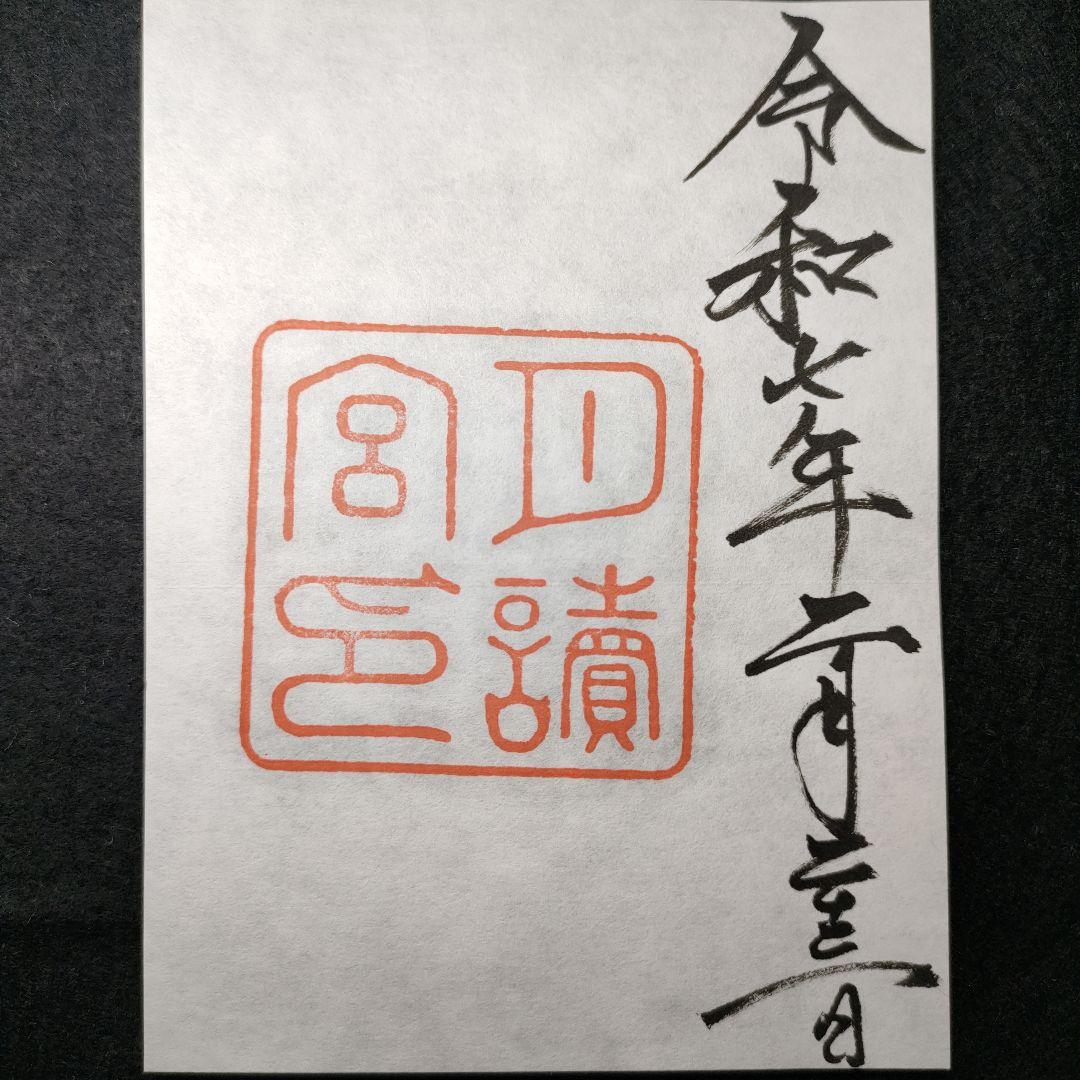 令和七年二月二十三日
月讀
宮印